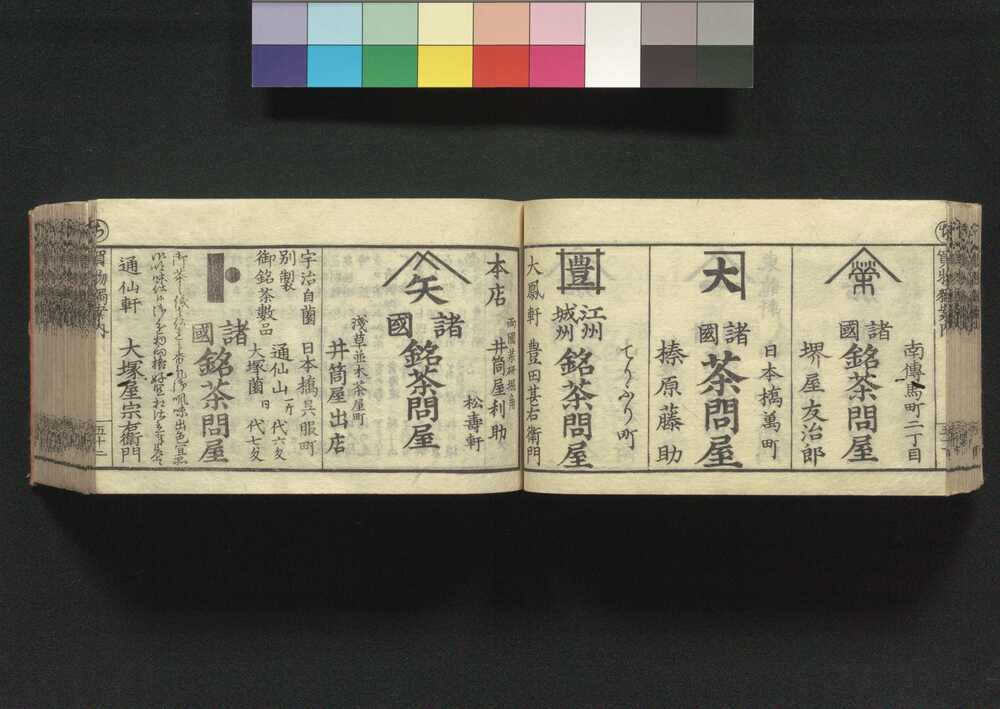 榮
諸國
銘茶問屋
南傳馬町二丁目
堺屋友治郎
大
諸國
茶問屋
日本橋萬町
榛原藤助
豊
江州
城州
銘茶問屋
てりふり町
大鳳軒
豊田甚右衛門
矢
諸國
銘茶問屋
松壽軒
本店
両國薬研堀角
井筒屋利助
浅草並木茶屋町
井筒屋出店
諸國
銘茶問屋
日本橋呉服町
宇治自園
別製
御銘茶數品
通仙山
代六匁
大塚薗
代七匁
通仙軒
大塚屋宗右衛門
五十二